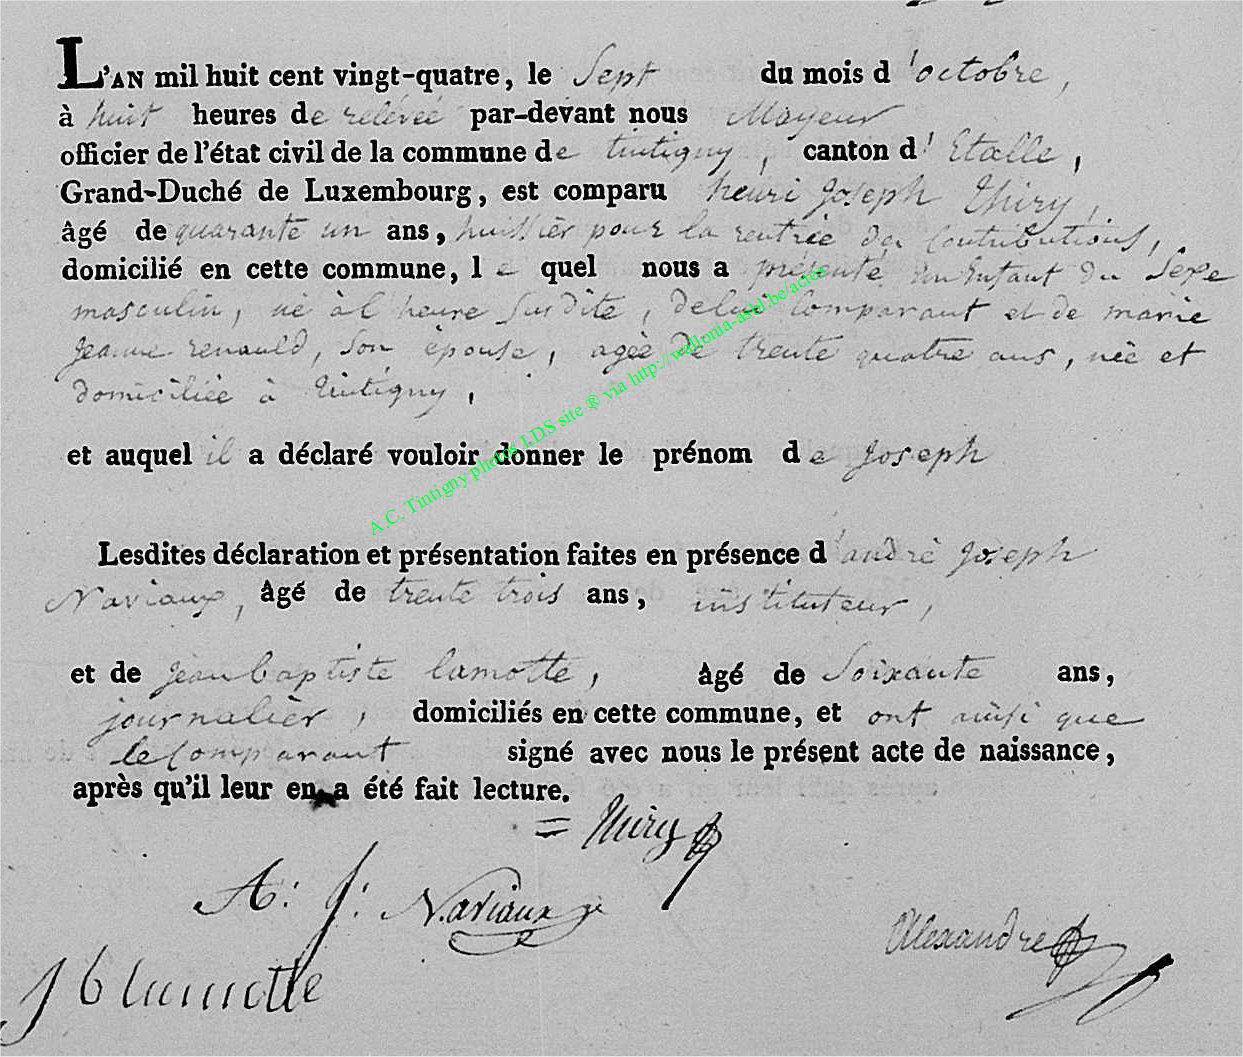 L'AN mil huit cent vingt-quatre, le Sept du mois d'octobre,
à huit heures de relévée par-devant nous Mayeur
officier de l'état civil de la commune de tintigny, canton d'Etalle,
Grand-Duché de Luxembourg, est comparu henri Joseph Thiry,
âgé de quarante un ans, huissièr pour la rentrée des Contributions,
domicilié en cette commune, le quel nous a présenté un Enfant du Sexe
masculin, né à l'heure Susdite, delui Comparant et de marie
jeanne renauld, Son épouse, agée de trente quatre ans, née et
domiciliée à Tintigny,
et auquel il a déclaré vouloir donner le prénom de Joseph
Lesdites déclaration et présentation faites en présence d'andré Joseph
Naviaux, âgé de trente trois ans, instituteur,
et de jean baptiste lamotte, âgé de Soixante ans,
journalièr, domiciliés en cette commune, et ont ainsi que
le Comparant signé avec nous le présent acte de naissance,
après qu'il leur en a été fait lecture.
= Thiry
A: J: Naviaux
Alexandre
J b lamotte
A.C. Tintigny photos LDS site ® via http://wallonia-asbl.be/actes